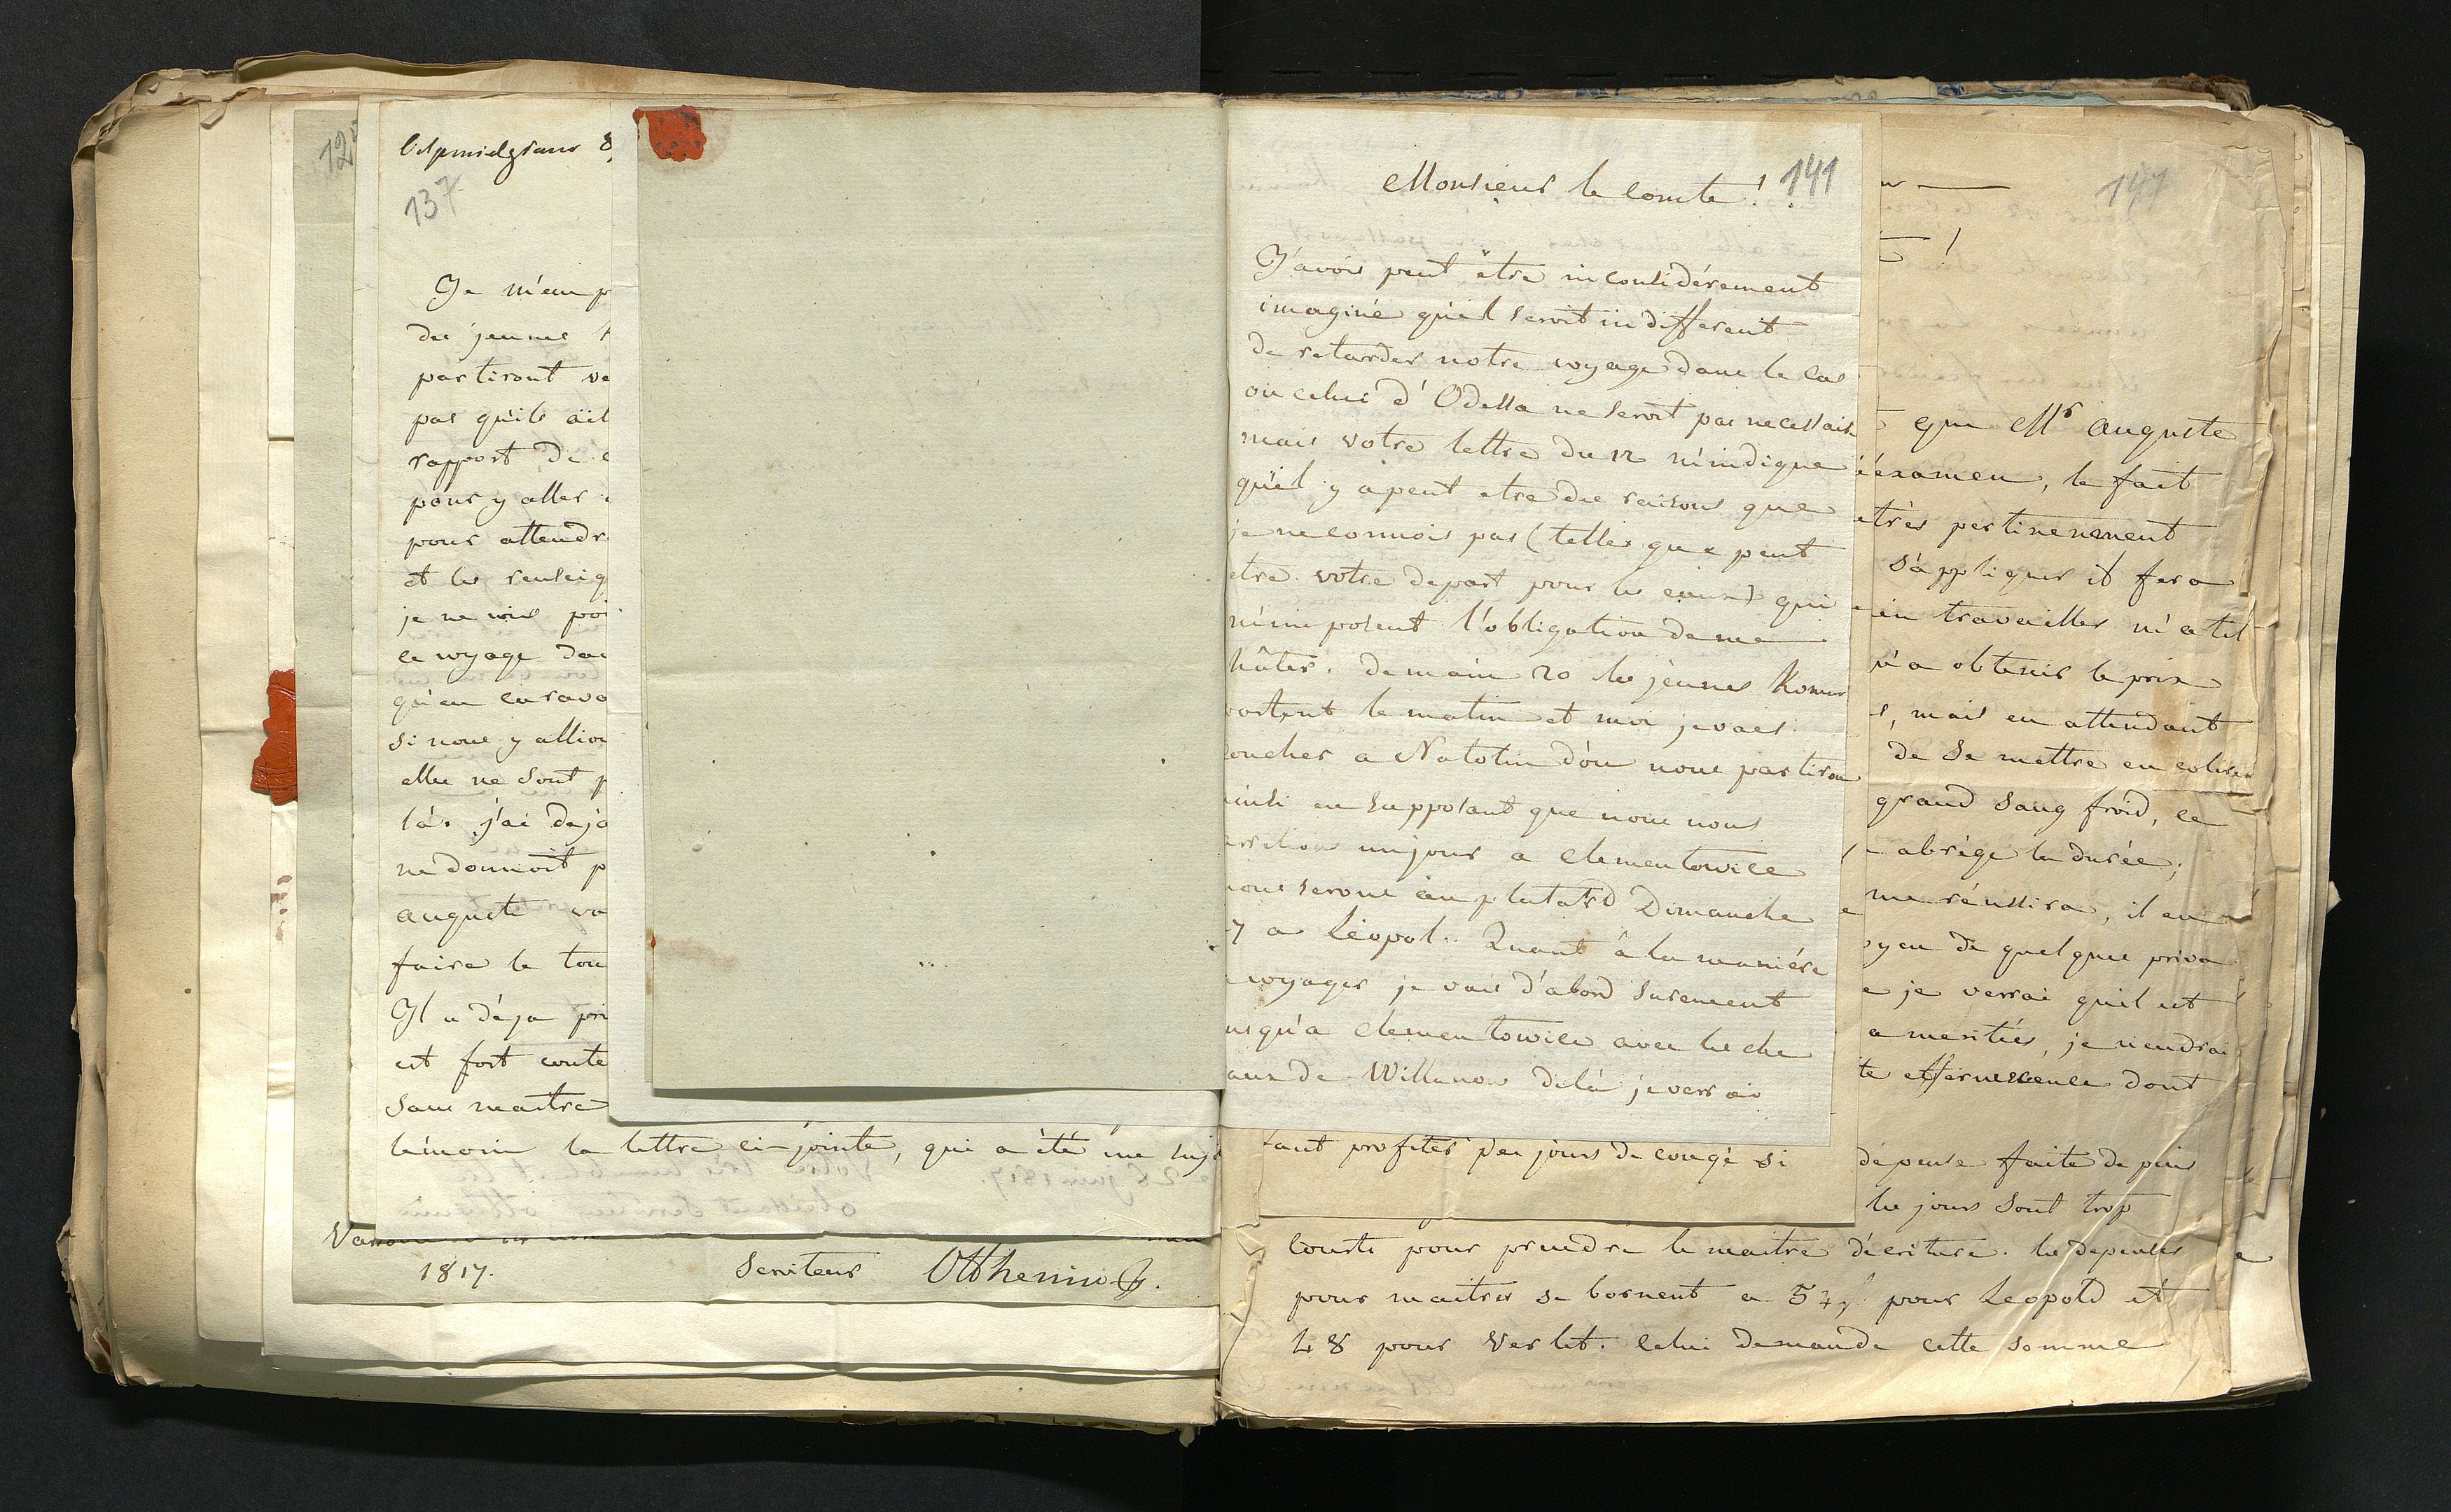 137
Je m'emp
des jeunes
partiront ve
pas qu'ils aï
rapport de
pour y aller
pour attendr
et les renseig
je ne vois poi
ce voyage da
qu'en carava
si nous y allion
elles ne sont p
là. j'ai deja
ne donnoit p
auguste vo
faire le tou
Il a déja pri
est fort conte
sans maitre
témoin la lettre ci-jointe, qui a été me
1817.
Serviteur Otthenin
141
Monsieur le comte!
J'avois peut être inconsidérement
imaginé qu'il seroit indifferent
de retarder notre voyage dans le cas
ou celui d'Odessa ne seroit pas necessaire
mais votre lettre du 12 m'indique
qu'il y a peut etre des raisons que
je ne connois pas (telles que peut
etre votre depart pour les eaux) qui
m'imposent l'obligation de me
hâter. demain 20 les jeunes Komar
partent le matin et moi je vais
coucher a Natolin d'ou nous partirons
ainsi en supposant que nous nous
arretions un jour a Clementowice
nous serons au plutard Dimanche
7 a Léopol. Quant à la manière
voyager je vais d'abord surement
usqu'a Clementowice avec les che
aux de Willanow delà je verrai
tant profiter des jours de congé si
147
que Mr auguste
examen, le fait
très pertinemment
s'appliquer il fera
ien travailler m'a t'il
n'a obtenir le prix
s, mais en attendant
de se mettre en colere
grand sang froid, ce
abrège la durée;
me réussira, il en
oyen de quelques priva
e je verrai qu'il est
a meritées, je viendrai
te effervescence dont
dépense faite depuis
les jours sont trop
courts pour prendre le maitre d'écriture. les depenses
pour maitres se bornent a 54 pour Leopold et
48 pour Verlet. Celui demande cette somme